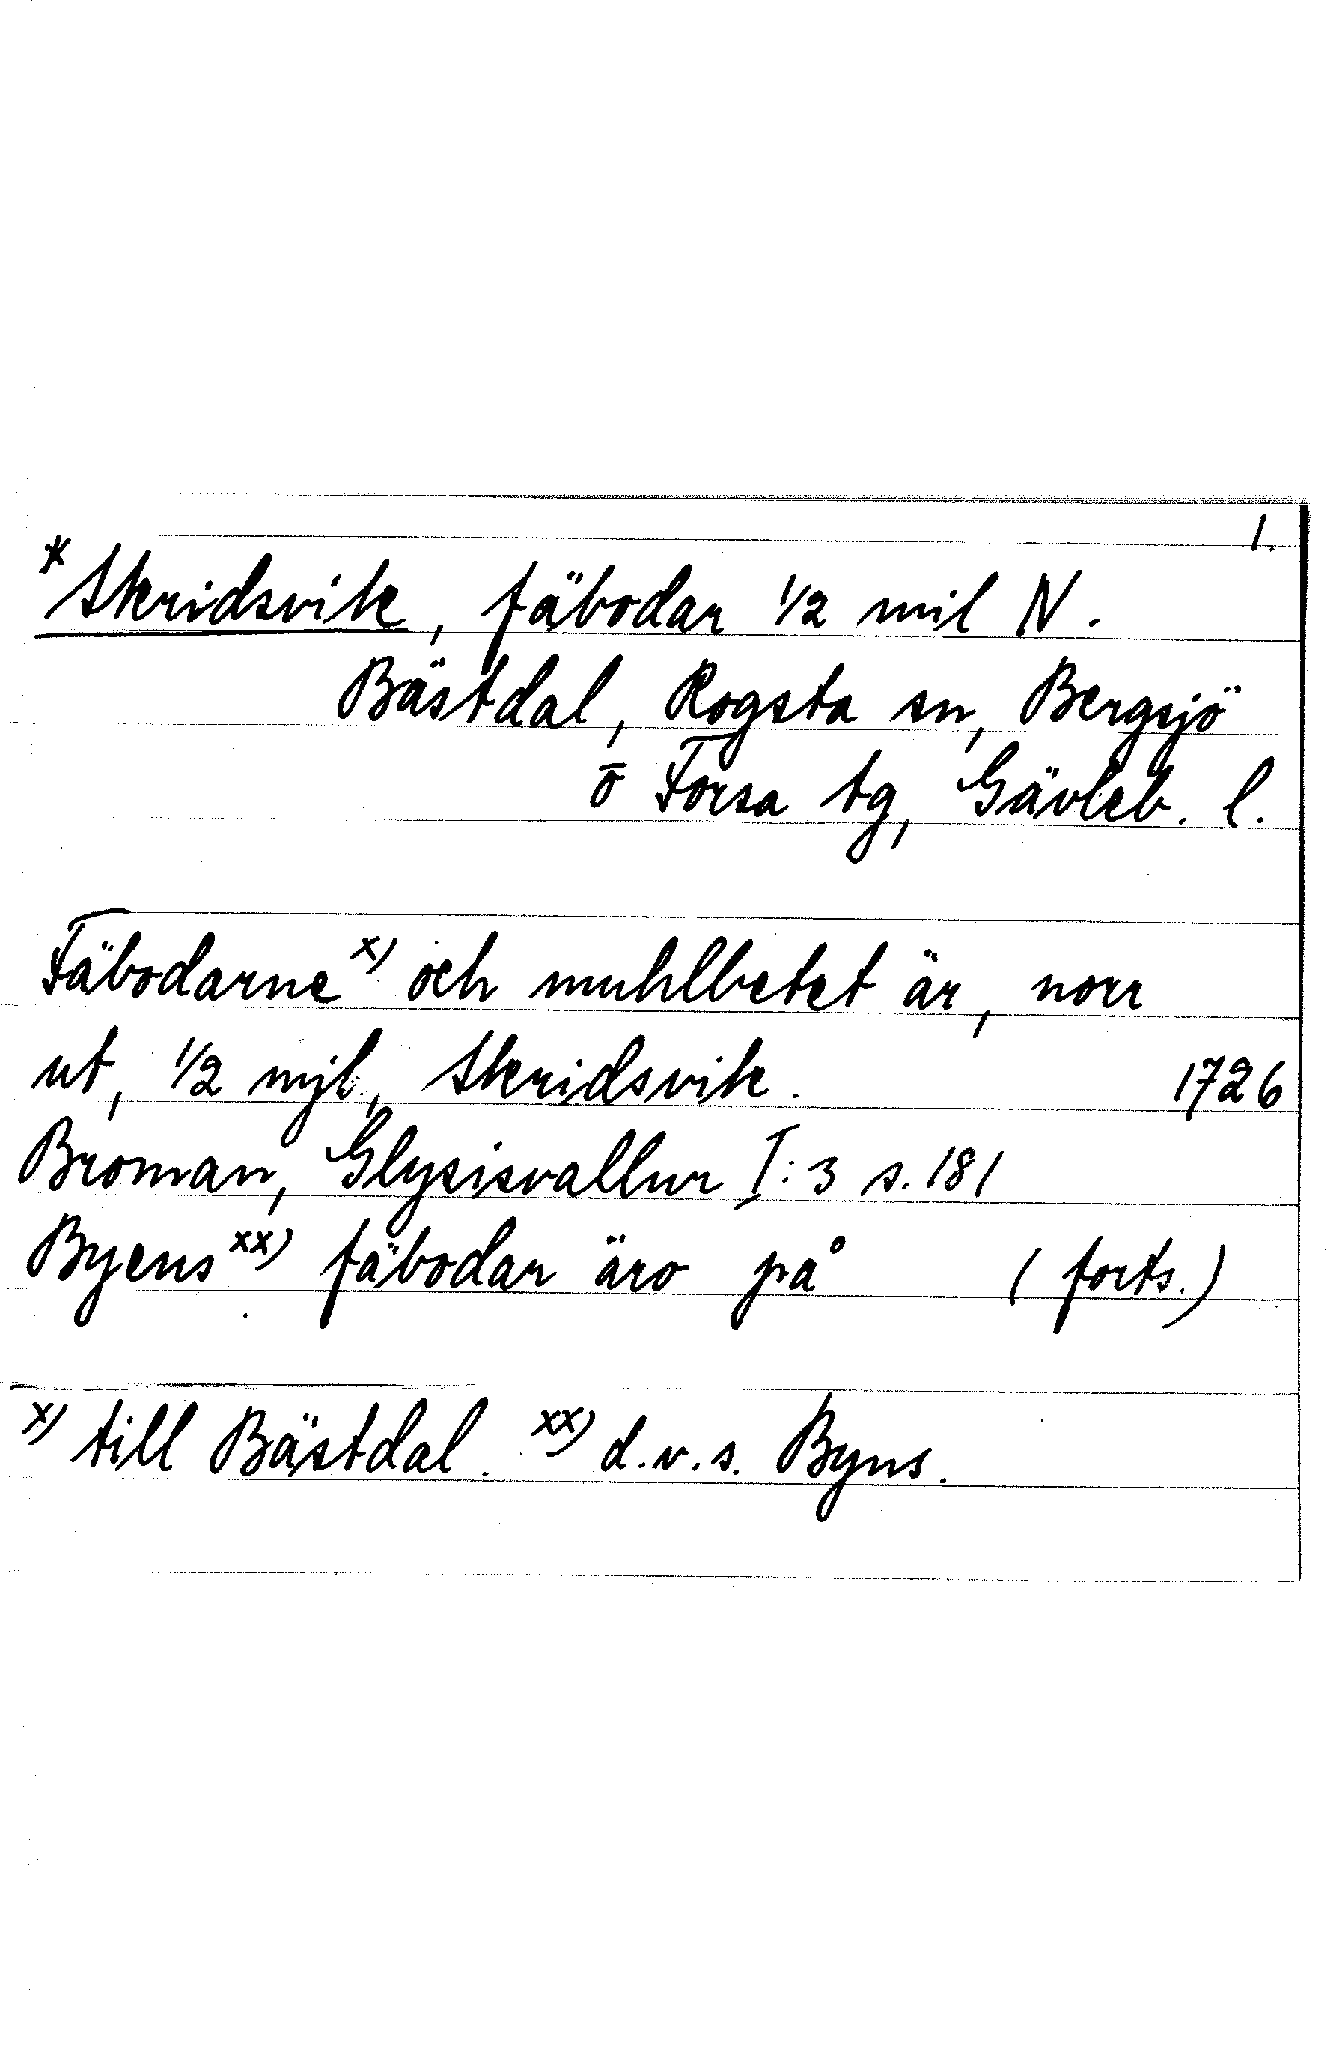 1.
*Skridsvik, fäbodar 1/2 mil N.
Bästdal, Rogsta sn, Bergsjö
o Forsa tg, Gävleb. l.
Fäbodarne x) och muhlbetet är, norr
ut, 1/2 mjl, Skridsvik. 1726
Broman, Glysisvallur I:3 s. 181
Byens xx) fäbodar äro på (forts.)
x) till Bästdal. xx) d.v.s. Byns.